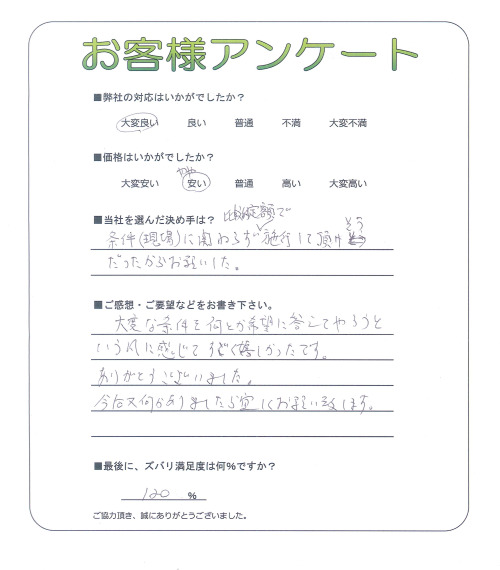 お客様アンケート
■弊社の対応はいかがでしたか？
大変良い 良い 普通 不満 大変不満
■価格はいかがでしたか？
やや
大変安い 安い 普通 高い 大変高い
■当社を選んだ決め手は？ 比較的定額で
条件(現場)に関わらず施行して頂けそう
だったからお願いした。
■ご感想・ご要望などをお書き下さい。
大変な条件を何とか希望に答えてやろうと
いう風に感じてすごく嬉しかったです。
ありがとうございました。
今后又何かありましたら宜しくお願い致します。
■最後に、ズバリ満足度は何%ですか？
120 %
ご協力頂き、誠にありがとうございました。